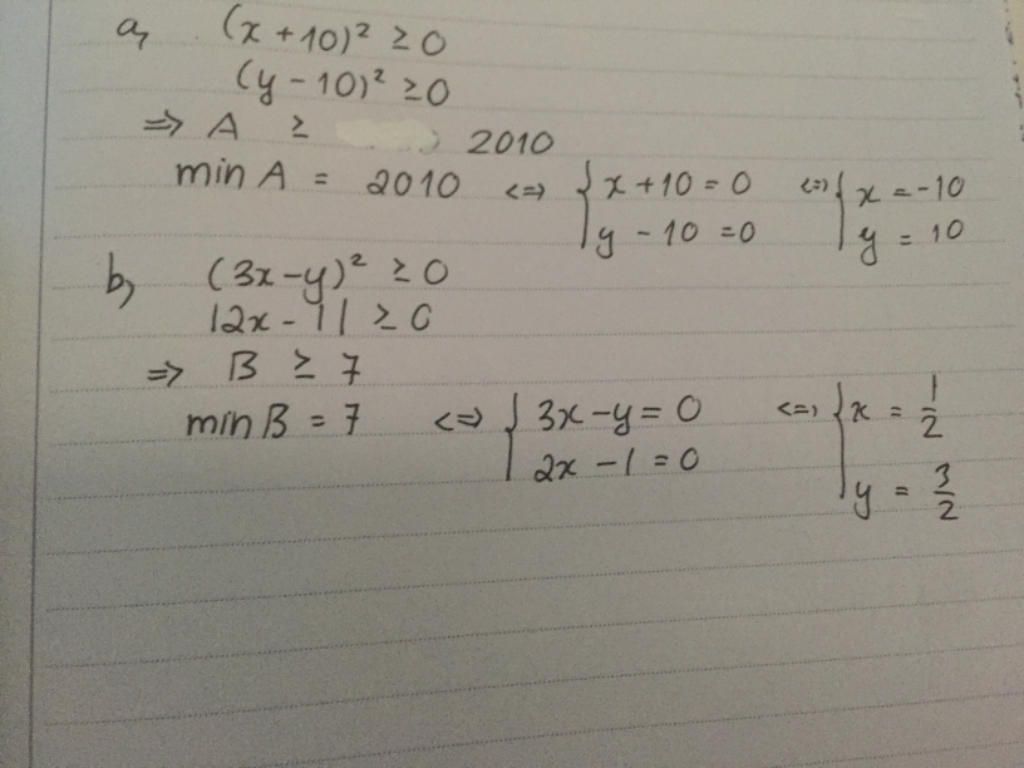 a, (x + 10)² ≥ 0
(y - 10)² ≥ 0
=> A ≥ 2010
min A = 2010 <=> { x + 10 = 0 <=> { x = -10
y - 10 = 0 y = 10
b, (3x - y)² ≥ 0
|2x - 1| ≥ 0
=> B ≥ 7
min B = 7 <=> { 3x - y = 0 <=> { x = 1/2
2x - 1 = 0 y = 3/2